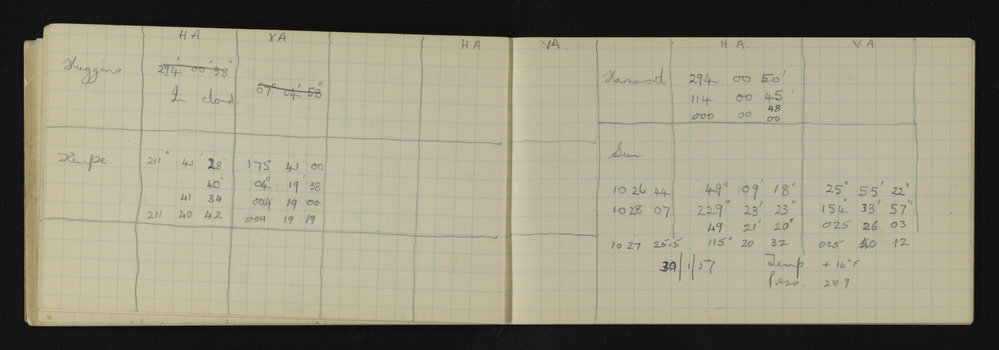 H A V A
Huggins 294° 00' 58"
59° 04' 58"
In cloud
Kempe 211° 41' 28" 175 41 00
40 04° 19' 38
41 34 004 19 00
211 40 42 004 19 19
H A VA H. A. V. A
294 00 50'
114 00 45
48
000 00 00
Sun
10 26 44 49° 09' 18" 25° 55' 22"
10 28 07 229° 23' 23" 154° 33' 57"
49 21' 20" 025 26 03
10 27 25.5 115° 20 32 025 40 12
30/1/57 Temp. + 14°F
Press. 28 9